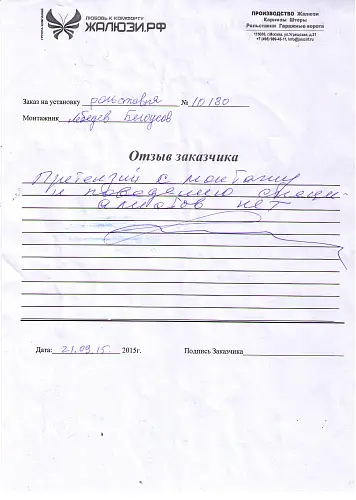 ЛЮБОВЬ К КОМФОРТУ
ЖАЛЮЗИ.РФ
ПРОИЗВОДСТВО Жалюзи
Карнизы Шторы
Рольставни Гаражные ворота
Заказ на установку рольставня № 10180
Монтажник Лебедев Белоусов
Отзыв заказчика
Претензий с монтажу
и поведению специ-
алистов нет
Дата: 21.09.15 2015г.
Подпись Заказчика